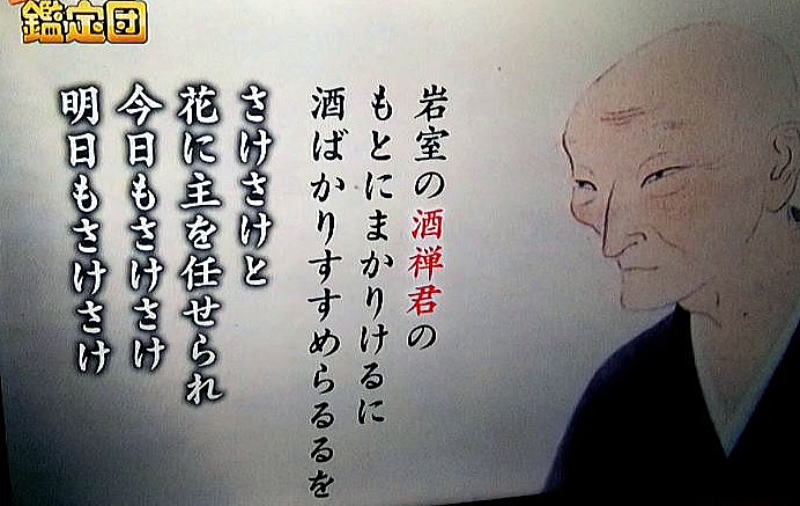 鑑定団
岩室の酒禅君の
もとにまかりけるに
酒ばかりすすめらるるを
さけさけと
花に主を任せられ
今日もさけさけ
明日もさけさけ